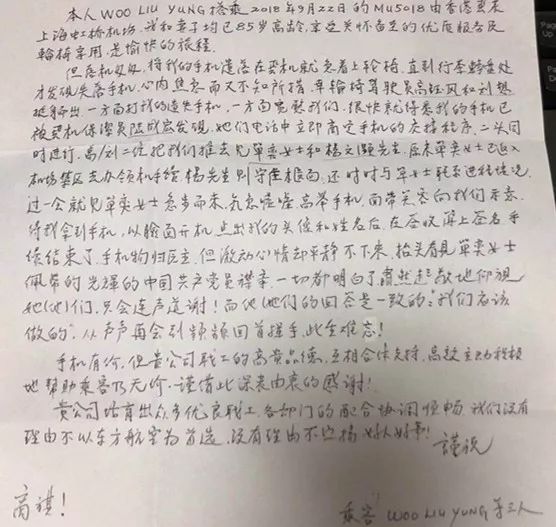 本人 WOO LIU YUNG 搭乘 2018年9月22日的 MU5018 由香港飞来
上海虹桥机场,我和妻子均已85岁高龄,享受关怀备至的优质服务及
轮椅享用,是愉快的旅程。
但落机匆匆,将我的手机遗落在飞机就急着上轮椅,直到行李转盘处
才发现失落手机,心内焦急而又不知所措,车轮椅驾驶员高 风和刘
挺躬 ,一方面打我的遗失手机,一方面宽慰我们,很快就得悉我的手机已
被飞机保洁员陈成宏发现,她们电话中立即商定手机的 程序,二头同
时进行,高/刘二位把我们推去见单奕女士和杨文灏先生,原来单奕女士已进入
机场禁区去办领机手续,杨先生则守座柜面,还时时与单女士联系进程情况,
过一会就见单奕女士急步而来,气急 高举手机,面带笑容向我们示意,
待我拿到手机,以脸面开机,点出我的头像和姓名后,在签收簿上签名,手
续结束了,手机物归原主,但激动心情却平静不下来,抬头看见单奕女士
佩带的光辉的中国共产党员襟章,一切都明白了,肃然起敬地仰视
她(他)们,只会连声道谢!而他(她)们的回答是一致的:"我们应该
做的",从声声再会到频频回首握手,此生难忘!
手机有价,但贵公司职工的高贵品德,互相合作支持,高效主动积极
地帮助乘客乃无价,谨借此深表由衷的感谢!
贵公司培育出众多优良职工,各部门的配合协调顺畅,我们没有
理由不以东方航空为首选,没有理由不宣扬好人好事!
谨祝
高祺!
乘客 WOO LIU YUNG 等三人